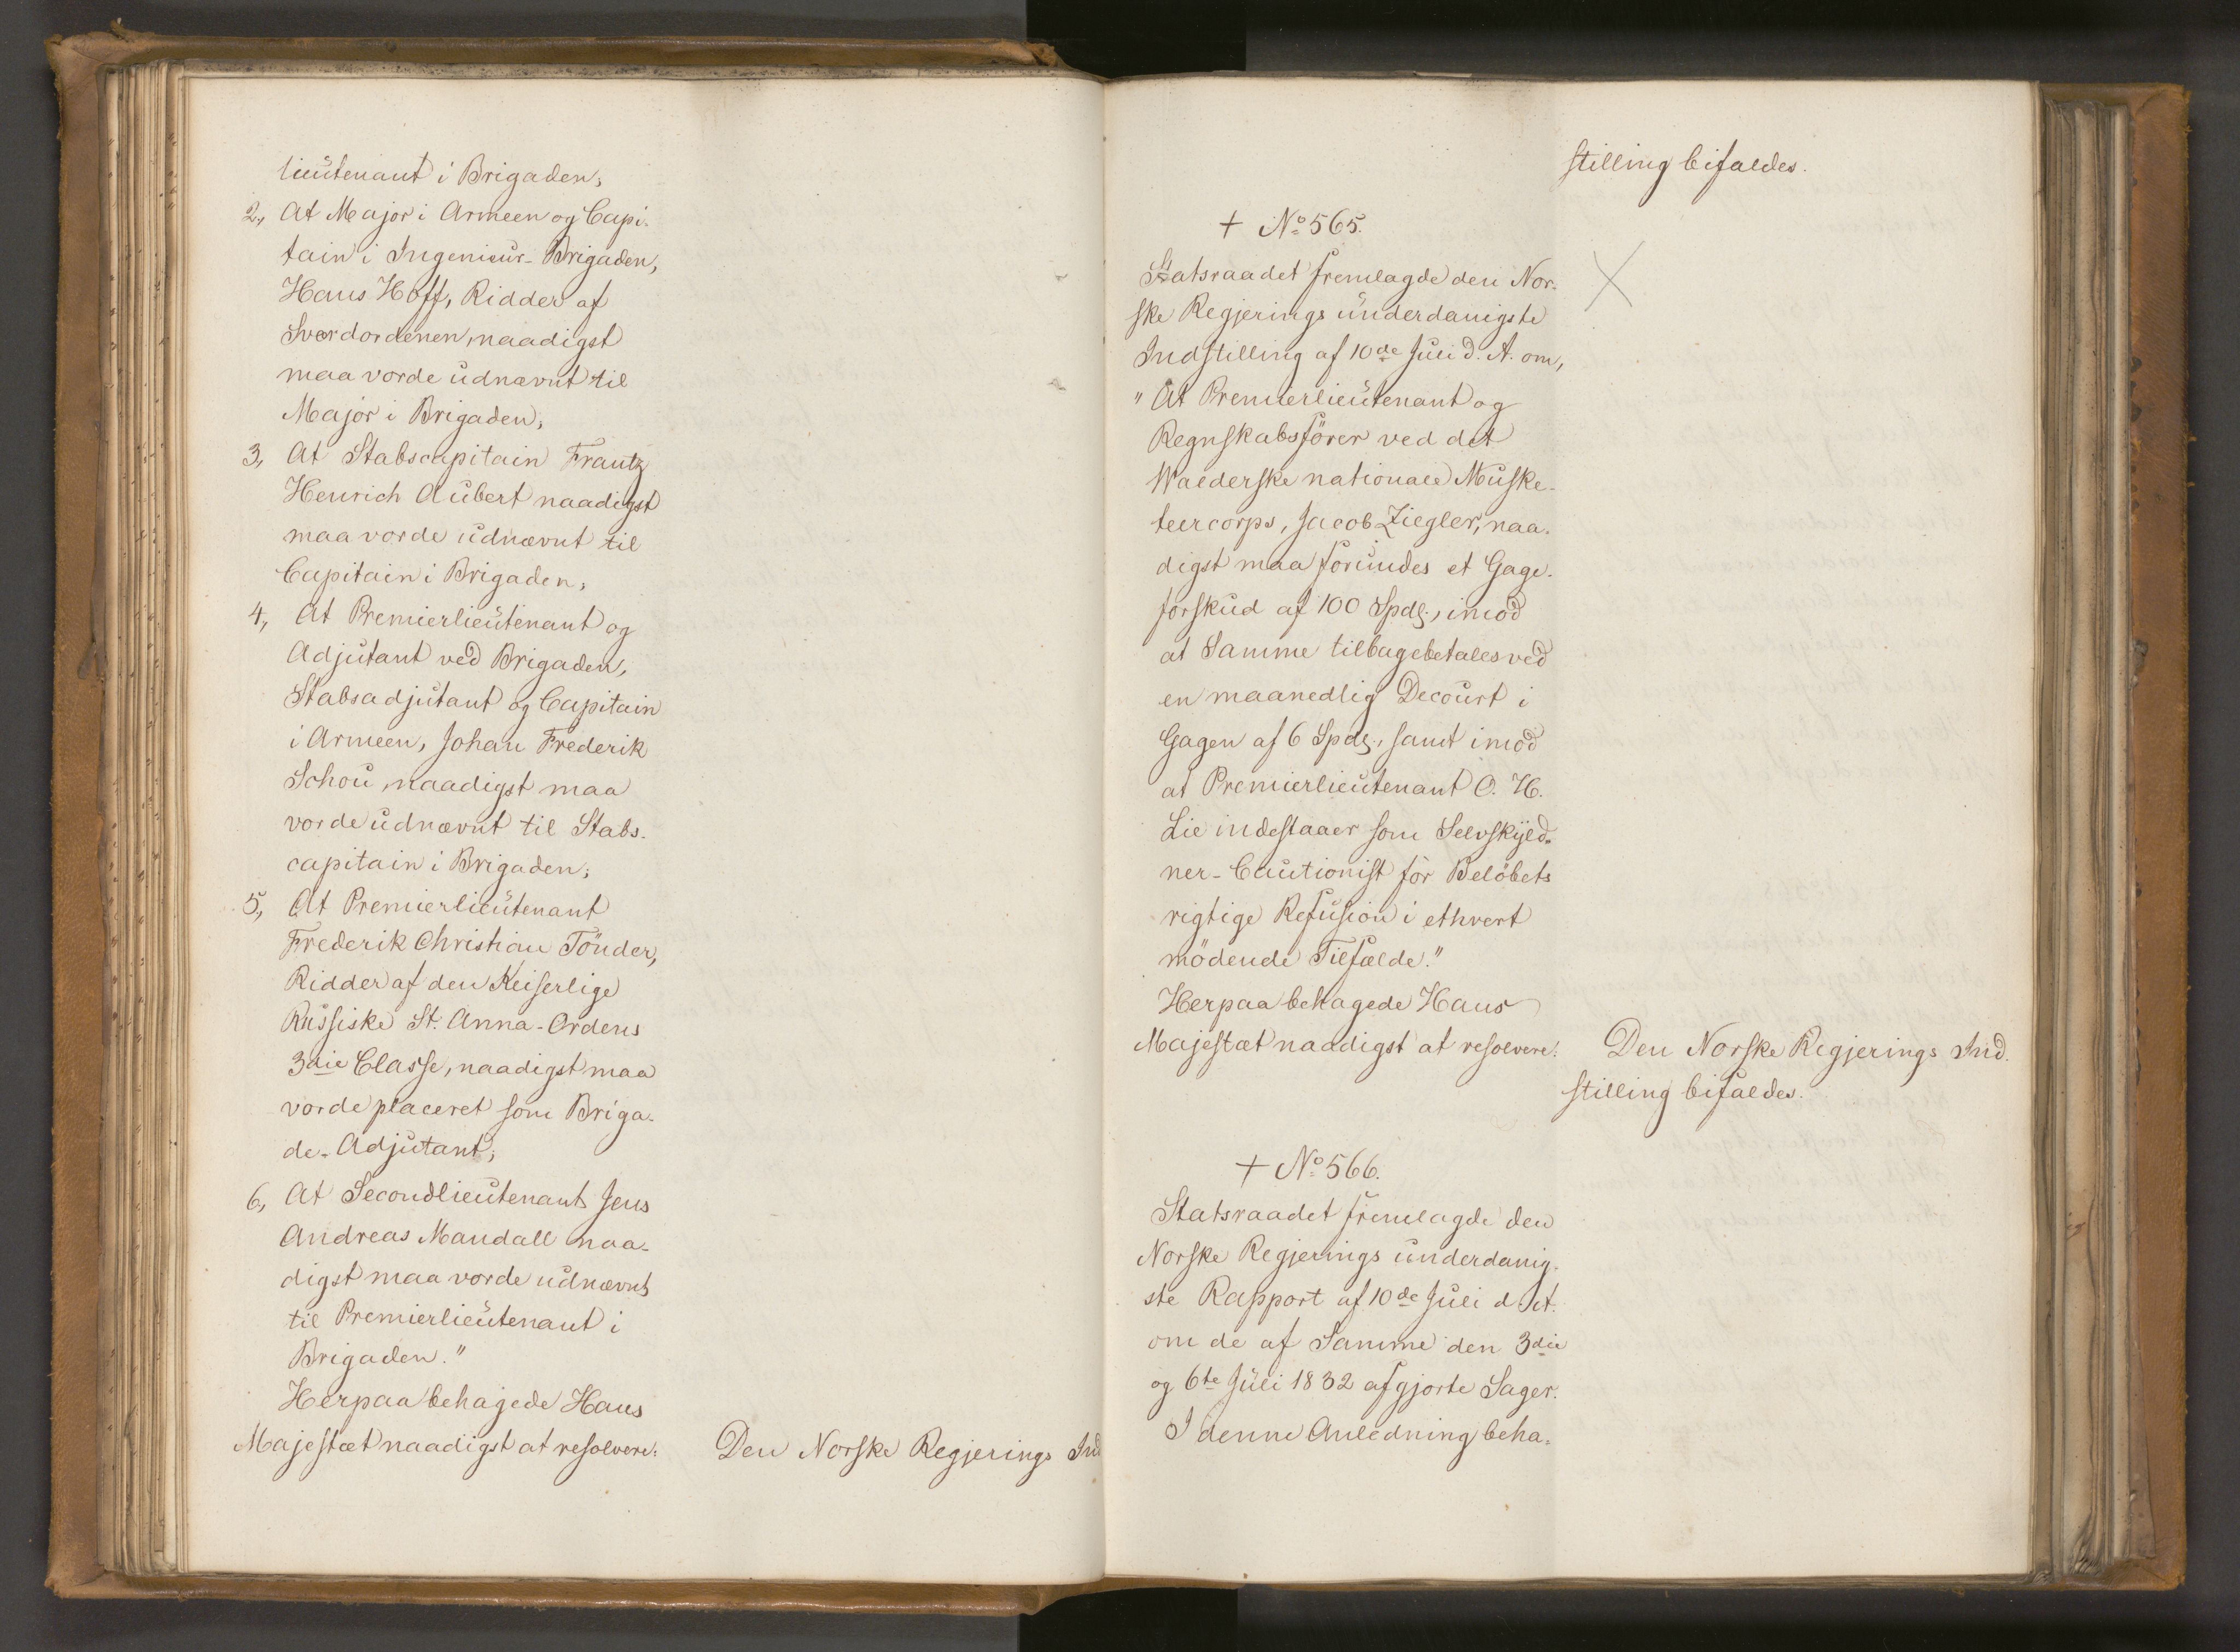 lieutenant i Brigaden;
2, At Major i Armeen og Capi-
tain i Ingenieur-Brigaden,
Hans Hoff, Ridder af
Sværdordenen, naadigst
maa vorde udnævnt til
Major i Brigaden;
3, At Stabscapitain Frantz
Henrich Aubert naadigst
maa vorde udnævnt til
Capitain i Brigaden;
4, At Premierlieutenant og
Adjutant ved Brigaden,
Stabsadjutant og Capitain
i Armeen, Johan Frederik
Schou, naadigst maa
vorde udnævnt til Stabs-
capitain i Brigaden;
5, At Premierlieutenant
Frederik Christian Tönder,
Ridder af den Keiserlige
Russiske St. Anna-Ordens
3die Classe, naadigst maa
vorde placeret som Briga-
de-Adjutant;
6, At Secondlieutenant Jens
Andreas Mandall naa-
digst maa vorde udnævnt
til Premierlieutenant i
Brigaden."
Herpaa behagede Hans
Majestæt naadigst at resolvere:
Den Norske Regjerings Ind
stilling bifaldes.
+ No 565.
Statsraadet fremlagde den Nor-
ske Regjerings underdanigste
Indstilling af 10de Juli d. A. om,
"At Premierlieutenant og
Regnskabsförer ved det
Walderske nationale Muske-
teercorps, Jacob Ziegler, naa-
digst maa forundes et Gage-
forskud af 100 Spdlr., imod
at Samme tilbagebetales ved
en maanedlig Decourt i
Gagen af 6 Spdlr., samt imod
at Premierlieutenant O. H.
Lie indestaaer som Selvskyld-
ner-Cautionist for Belöbets
rigtige Refusion i ethvert
mödende Tilfælde."
Herpaa behagede Hans
Majestæt naadigst at resolvere:
Den Norske Regjerings Ind-
stilling bifaldes.
+ No 566.
Statsraadet fremlagde den
Norske Regjerings underdanig-
ste Rapport af 10de Juli d. A.
om de af Samme den 3die
og 6te Juli 1832 afgjorte Sager.
I denne Anledning beha-